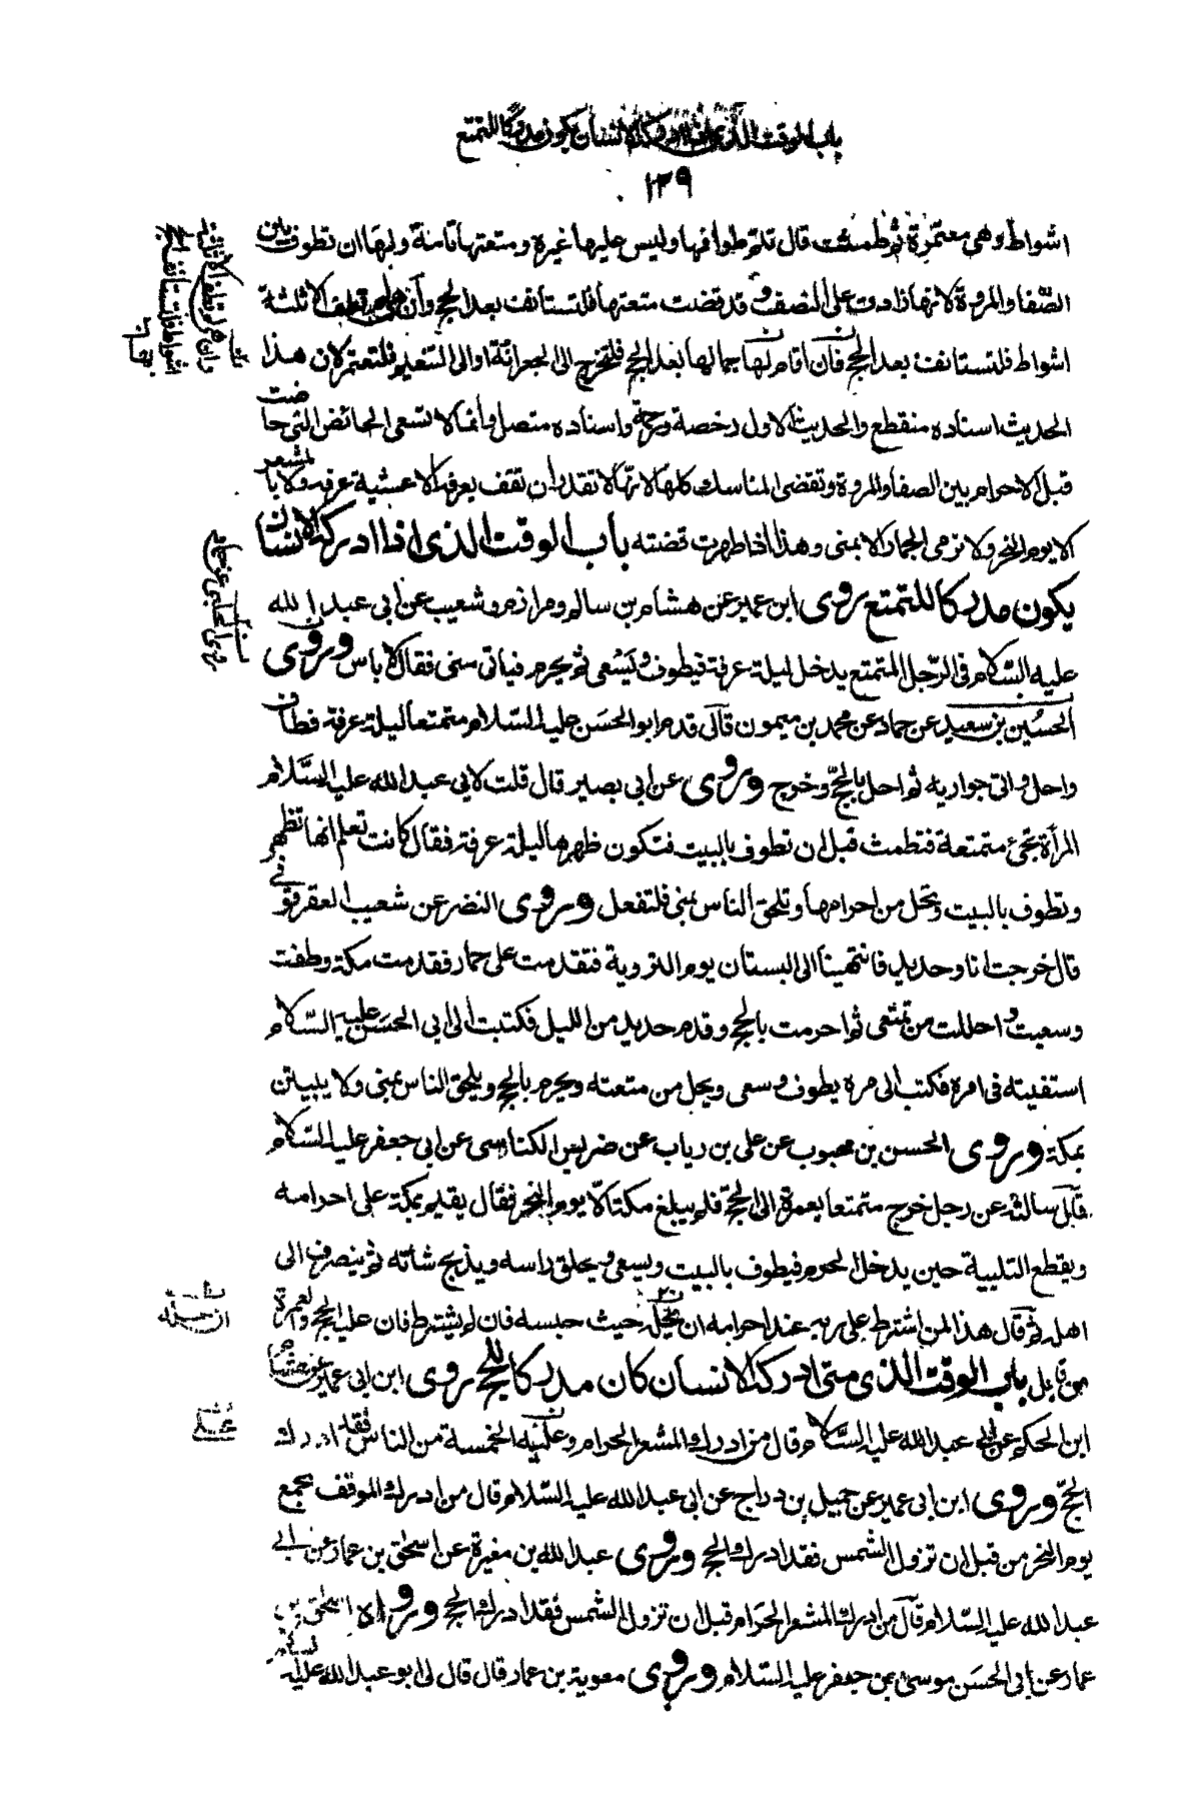 باب الوقت الذى اذا ادركه الانسان يكون مدركا للتمتع
١٣٩
اشواط وهى معتمرة ثم طمثت قال تتم طوافها وليس عليها غيره ومتعتها تامة ولها ان تطوف بين
الصفا والمروة لانها زادت على النصف وقد قضت متعتها فلتستأنف بعد الحج وان هى لم تطف الا ثلثة
اشواط فلتستانف بعد الحج فان اقام بها جمالها بعد الحج فلتخرج الى الجعرانة او الى التنعيم فلتعتمر لان هذا
الحديث اسناده منقطع والحديث الاول رخصة ورحمة واسناده متصل وانما لا تسعى الحائض التى حاضت
قبل الاحرام بين الصفا والمروة وتقضى المناسك كلها لانها لا تقدر ان تقف بعرفة الا عشية عرفة ولا بالمشعر
الا يوم النحر ولا ترمى الجمار الا بمنى وهذا اذا طهرت قضته باب الوقت الذى اذا ادركه الانسان
يكون مدركا للتمتع روى ابن عمير عن هشام بن سالم ومرازم وشعيب عن ابى عبد الله
عليه السلام فى الرجل المتمتع يدخل ليلة عرفة فيطوف ويسعى ثم يحرم فياتى منى فقال لا باس وروى
الحسين بن سعيد عن حماد عن محمد بن ميمون قال قدم ابو الحسن عليه السلام متمتعا ليلة عرفة فطاف
واحل واتى جواريه ثم احل بالحج وخرج وروى عن ابى بصير قال قلت لابى عبد الله عليه السلام
المرأة تجئ متمتعة فتطمث قبل ان تطوف بالبيت فتكون طهرها ليلة عرفة فقال كانت تعلم انها تطهر
وتطوف بالبيت وتحل من احرامها وتلحق الناس بمنى فلتفعل وروى النضر عن شعيب العقرقوفى
قال خرجت انا وحديد فانتهينا الى البستان يوم التروية فتقدمت على حمار فقدمت مكة وطفت
وسعيت واحللت من تمتعى ثم احرمت بالحج وقدم حديد من الليل فكتبت الى ابى الحسن عليه السلام
استفتيته فى امره فكتب الى مره يطوف وسعى ويحل من متعته ويحرم بالحج ويلحق الناس بمنى ولا يبيتن
بمكة وروى الحسن بن محبوب عن على بن رياب عن ضريس الكناسى عن ابى جعفر عليه السلام
قال سالته عن رجل خرج متمتعا بعمرة الى الحج فلم يبلغ مكة الا يوم النحر فقال يقيم بمكة على احرامه
ويقطع التلبية حين يدخل الحرم فيطوف بالبيت ويسعى ويحلق راسه ويذبح شاته ثم ينصرف الى
اهله ثم قال هذا لمن اشترط على ربه عند احرامه ان يحله حيث حبسه فان لم يشترط فان عليه الحج والعمرة
من قابل باب الوقت الذى متى ادركه الانسان كان مدركا للحج روى ابن ابى عمير عن هشام
ابن الحكم عن ابى عبد الله عليه السلام قال من ادرك المشعر الحرام وعليه الخمسة من الناس فقد ادرك
الحج وروى ابن ابى عمير عن جميل بن دراج عن ابى عبد الله عليه السلام قال من ادرك الموقف بجمع
يوم النحر من قبل ان تزول الشمس فقد ادرك الحج وروى عبد الله بن مغيرة عن اسحق بن عمار عن ابى
عبد الله عليه السلام قال من ادرك المشعر الحرام قبل ان تزول الشمس فقد ادرك الحج ورواه اسحق بن
عمار عن ابى الحسن موسى بن جعفر عليه السلام وروى معوية بن عمار قال قال لى ابو عبد الله عليه السلام